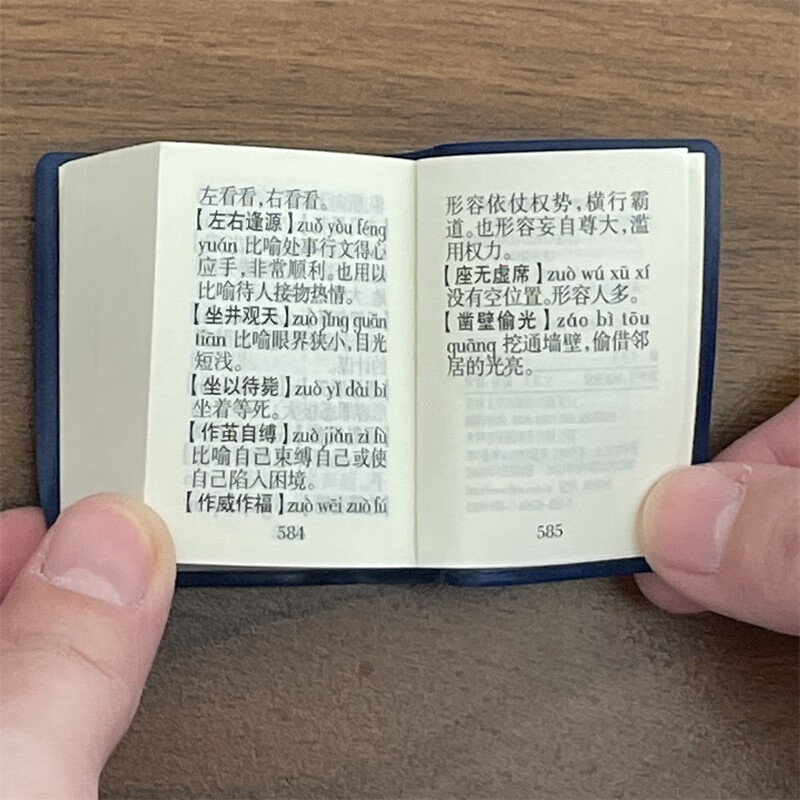 左看看,右看看。
【左右逢源】zuǒ yòu féng
yuán 比喻处事行文得心
应手,非常顺利。也用以
比喻待人接物热情。
【坐井观天】zuò jǐng guān
tiān 比喻眼界狭小,目光
短浅。
【坐以待毙】zuò yǐ dài bì
坐着等死。
【作茧自缚】zuò jiǎn zì fù
比喻自己束缚自己或使
自己陷入困境。
【作威作福】zuò wēi zuò fú
584
形容依仗权势,横行霸
道。也形容妄自尊大,滥
用权力。
【座无虚席】zuò wú xū xí
没有空位置。形容人多。
【凿壁偷光】záo bì tōu
guāng 挖通墙壁,偷借邻
居的光亮。
585